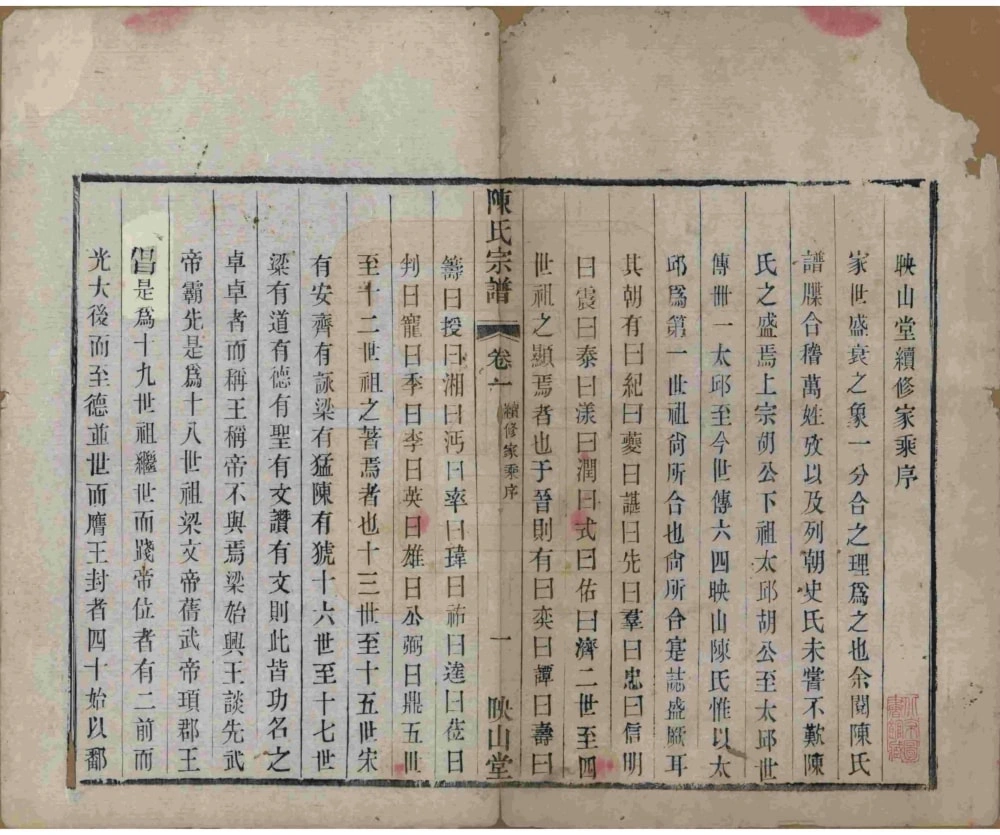 映山堂續修家乘序
家世盛衰之象一分合之理爲之也余閱陳氏
譜牒合稽萬姓攷以及列朝史氏未嘗不歎陳
氏之盛焉上宗胡公下祖太邱胡公至太邱世
傳卌一太邱至今世傳六四映山陳氏惟以太
邱爲第一世祖尚所合也尚所合寔誌盛厥耳
其朝有曰紀曰夔曰諶曰先曰羣曰忠曰信明
曰震曰泰曰漾曰潤曰式曰佑曰濟二世至四
世祖之顯焉者也于晉則有曰奕曰譚曰壽曰
陳氏宗譜 卷六 續修家乘序 一 映山堂
籌曰授曰湘曰沔曰率曰瑋曰祐曰達曰莅曰
判曰寵曰季曰李曰英曰雄曰公弼曰鼎五世
至十二世祖之著焉者也十三世至十五世宋
有安齊有詠梁有猛陳有猇十六世至十七世
梁有道有德有聖有文讚有文則此皆功名之
卓卓者而稱王稱帝不與焉梁始興王談先武
帝霸先是爲十八世祖梁文帝蒨武帝頊郡王
倡是爲十九世祖繼世而踐帝位者有二前而
光大後而至德並世而膺王封者四十始以鄱